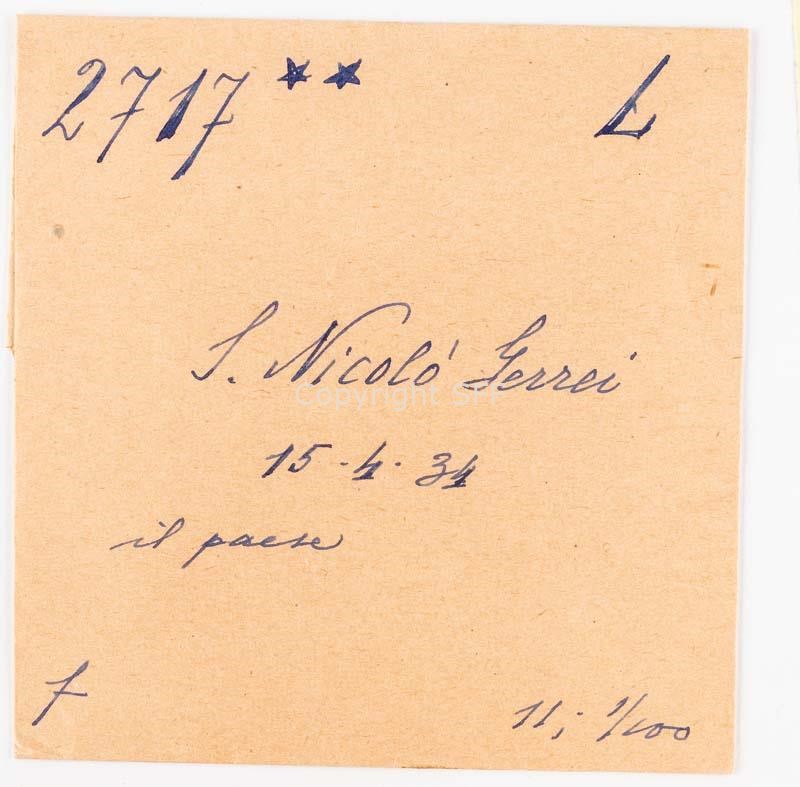 2717 ** L
S. Nicoló Gerrei
Copyright SFF
15-4-34
il paese
f 11; 1/100